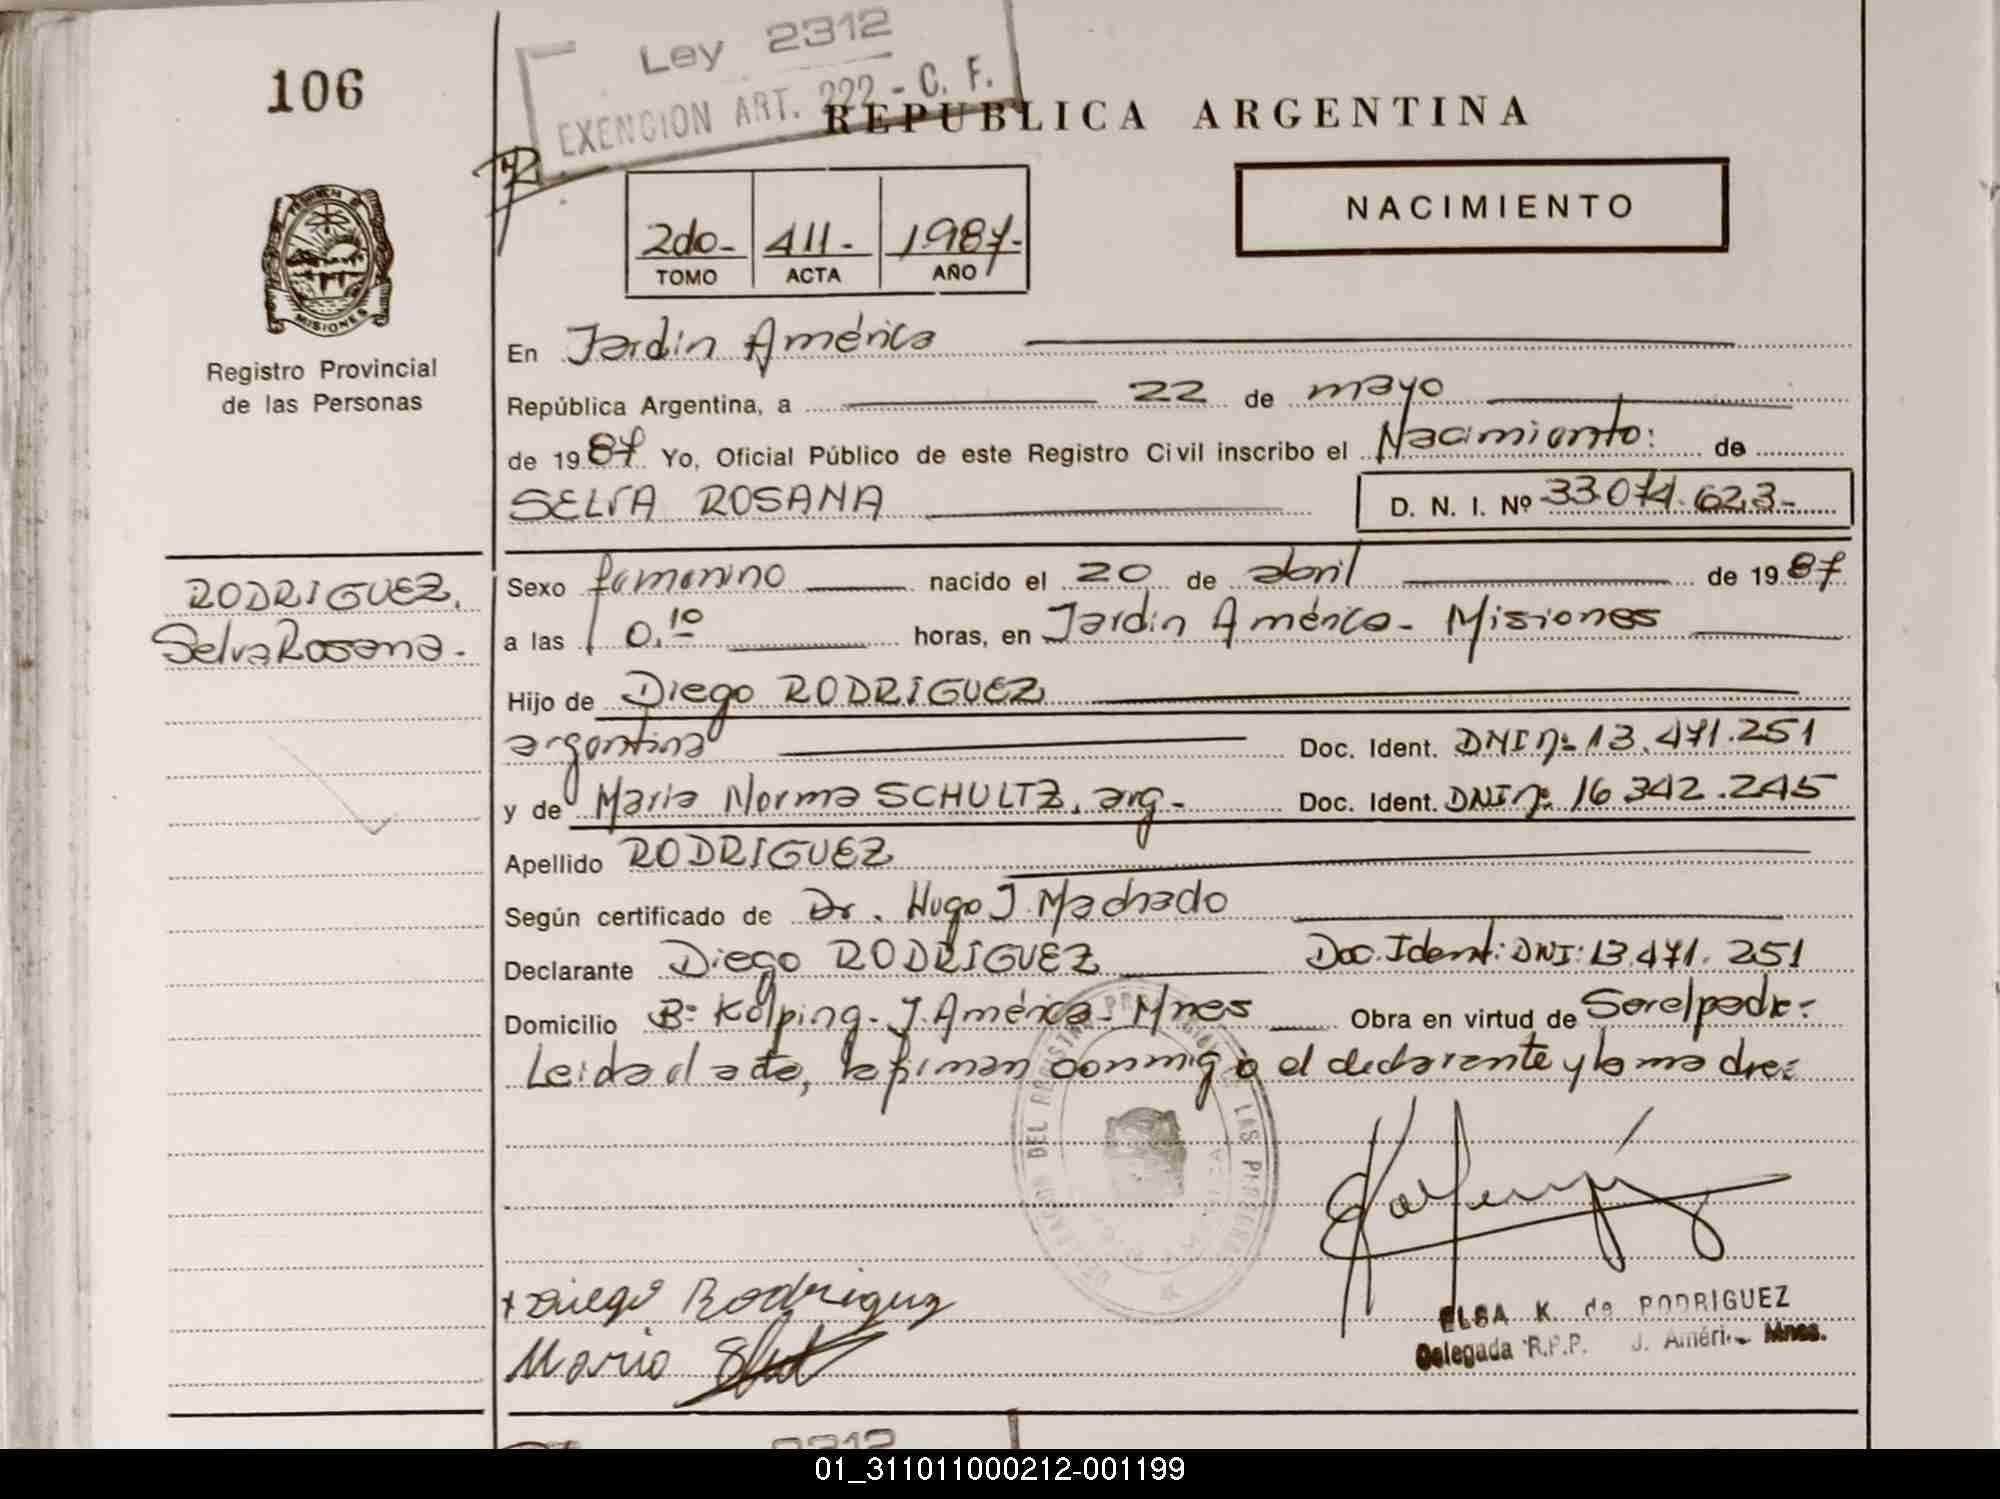 106
Ley 2312
EXENCION ART. 222 - C. F.
REPUBLICA ARGENTINA
NACIMIENTO
2do- 411- 1987-
TOMO ACTA AÑO
MISIONES
Registro Provincial
de las Personas
En Jardín América
República Argentina, a 22 de mayo
de 1987 Yo, Oficial Público de este Registro Civil inscribo el Nacimiento: de
SELVA ROSANA D. N. I. Nº 33.074.623-
RODRIGUEZ,
Selva Rosana.-
Sexo femenino nacido el 20 de abril de 1987
a las 0.10 horas, en Jardín América- Misiones
Hijo de Diego RODRIGUEZ
argentina Doc. Ident. DNI nº 13.471.251
y de Maria Norma SCHULTZ, arg- Doc. Ident. DNI nº 16 342.245
Apellido RODRIGUEZ
Según certificado de Dr. Hugo J. Machado
Declarante Diego RODRIGUEZ Doc. Ident: DNI: 13.471.251
Domicilio Bº Kolping- J. América- Mnes Obra en virtud de Ser el padre-
Leida el acta, la firman conmigo el declarante y la madre:
DEL REGISTRO LAS PERSONAS
Diego Rodriguez
Maria
ELSA K. de RODRIGUEZ
Delegada R.P.P. J. Améri Mnes.
2312
01_311011000212-001199